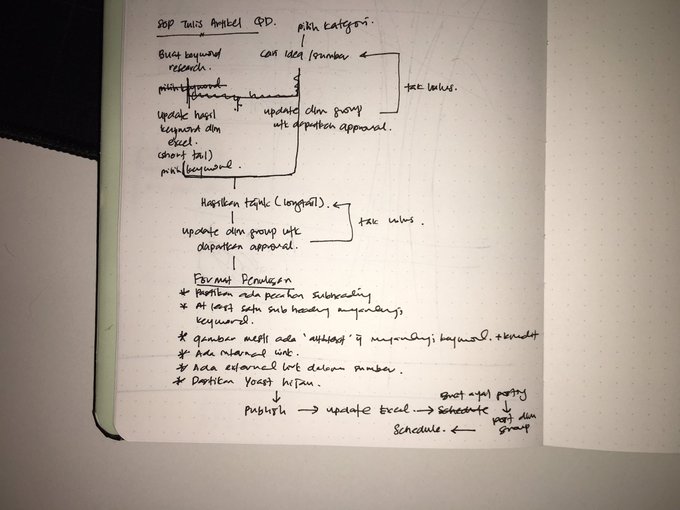 SOP Tulis Artikel QD.
pilih kategori.
Buat keyword
research.
cari idea / sumber
pilih keyword
tak lulus.
update hasil
keyword dlm
excel.
(short tail)
pilih keyword.
update dlm group
utk dapatkan approval.
Hasilkan tajuk (longtail).
tak lulus.
update dlm group utk
dapatkan approval.
Format Penulisan
* Pastikan ada pecahan subheading
* At least satu subheading mengandungi
keyword.
* gambar mesti ada 'alt text' yg mengandungi keyword. + kredit
* Ada internal link.
* Ada external link dalam sumber.
* Pastikan Yoast hijau.
Publish → update Excel → schedule
buat ayat posting
post dlm
group
Schedule. ←